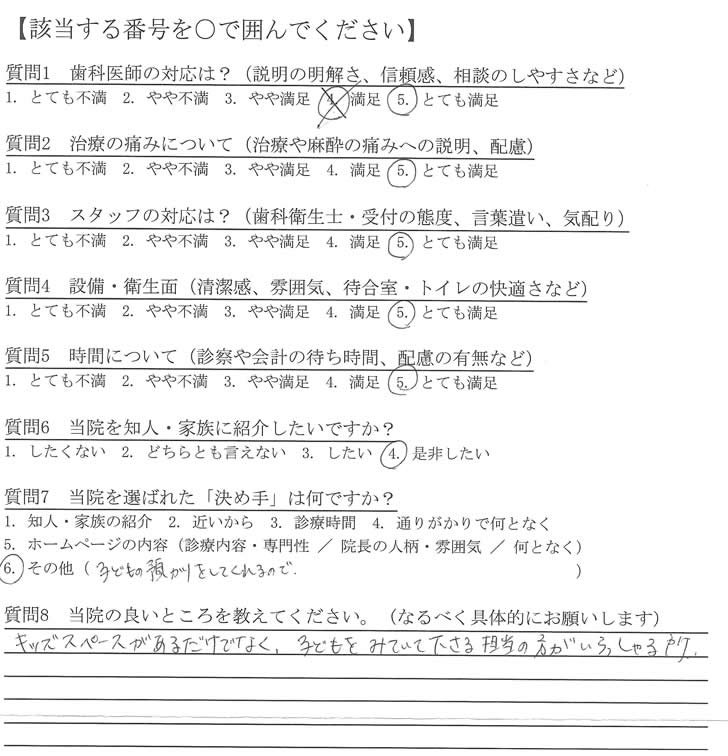 【該当する番号を○で囲んでください】
質問1　歯科医師の対応は？（説明の明解さ、信頼感、相談のしやすさなど）
1. とても不満　2. やや不満　3. やや満足　4. 満足　5. とても満足
質問2　治療の痛みについて（治療や麻酔の痛みへの説明、配慮）
1. とても不満　2. やや不満　3. やや満足　4. 満足　5. とても満足
質問3　スタッフの対応は？（歯科衛生士・受付の態度、言葉遣い、気配り）
1. とても不満　2. やや不満　3. やや満足　4. 満足　5. とても満足
質問4　設備・衛生面（清潔感、雰囲気、待合室・トイレの快適さなど）
1. とても不満　2. やや不満　3. やや満足　4. 満足　5. とても満足
質問5　時間について（診察や会計の待ち時間、配慮の有無など）
1. とても不満　2. やや不満　3. やや満足　4. 満足　5. とても満足
質問6　当院を知人・家族に紹介したいですか？
1. したくない　2. どちらとも言えない　3. したい　4. 是非したい
質問7　当院を選ばれた「決め手」は何ですか？
1. 知人・家族の紹介　2. 近いから　3. 診療時間　4. 通りがかりで何となく
5. ホームページの内容（診療内容・専門性 ／ 院長の人柄・雰囲気 ／ 何となく）
6. その他（ 子どもの預かりをしてくれるので. ）
質問8　当院の良いところを教えてください。（なるべく具体的にお願いします）
キッズスペースがあるだけでなく、子どもをみていて下さる担当の方がいらっしゃる所.